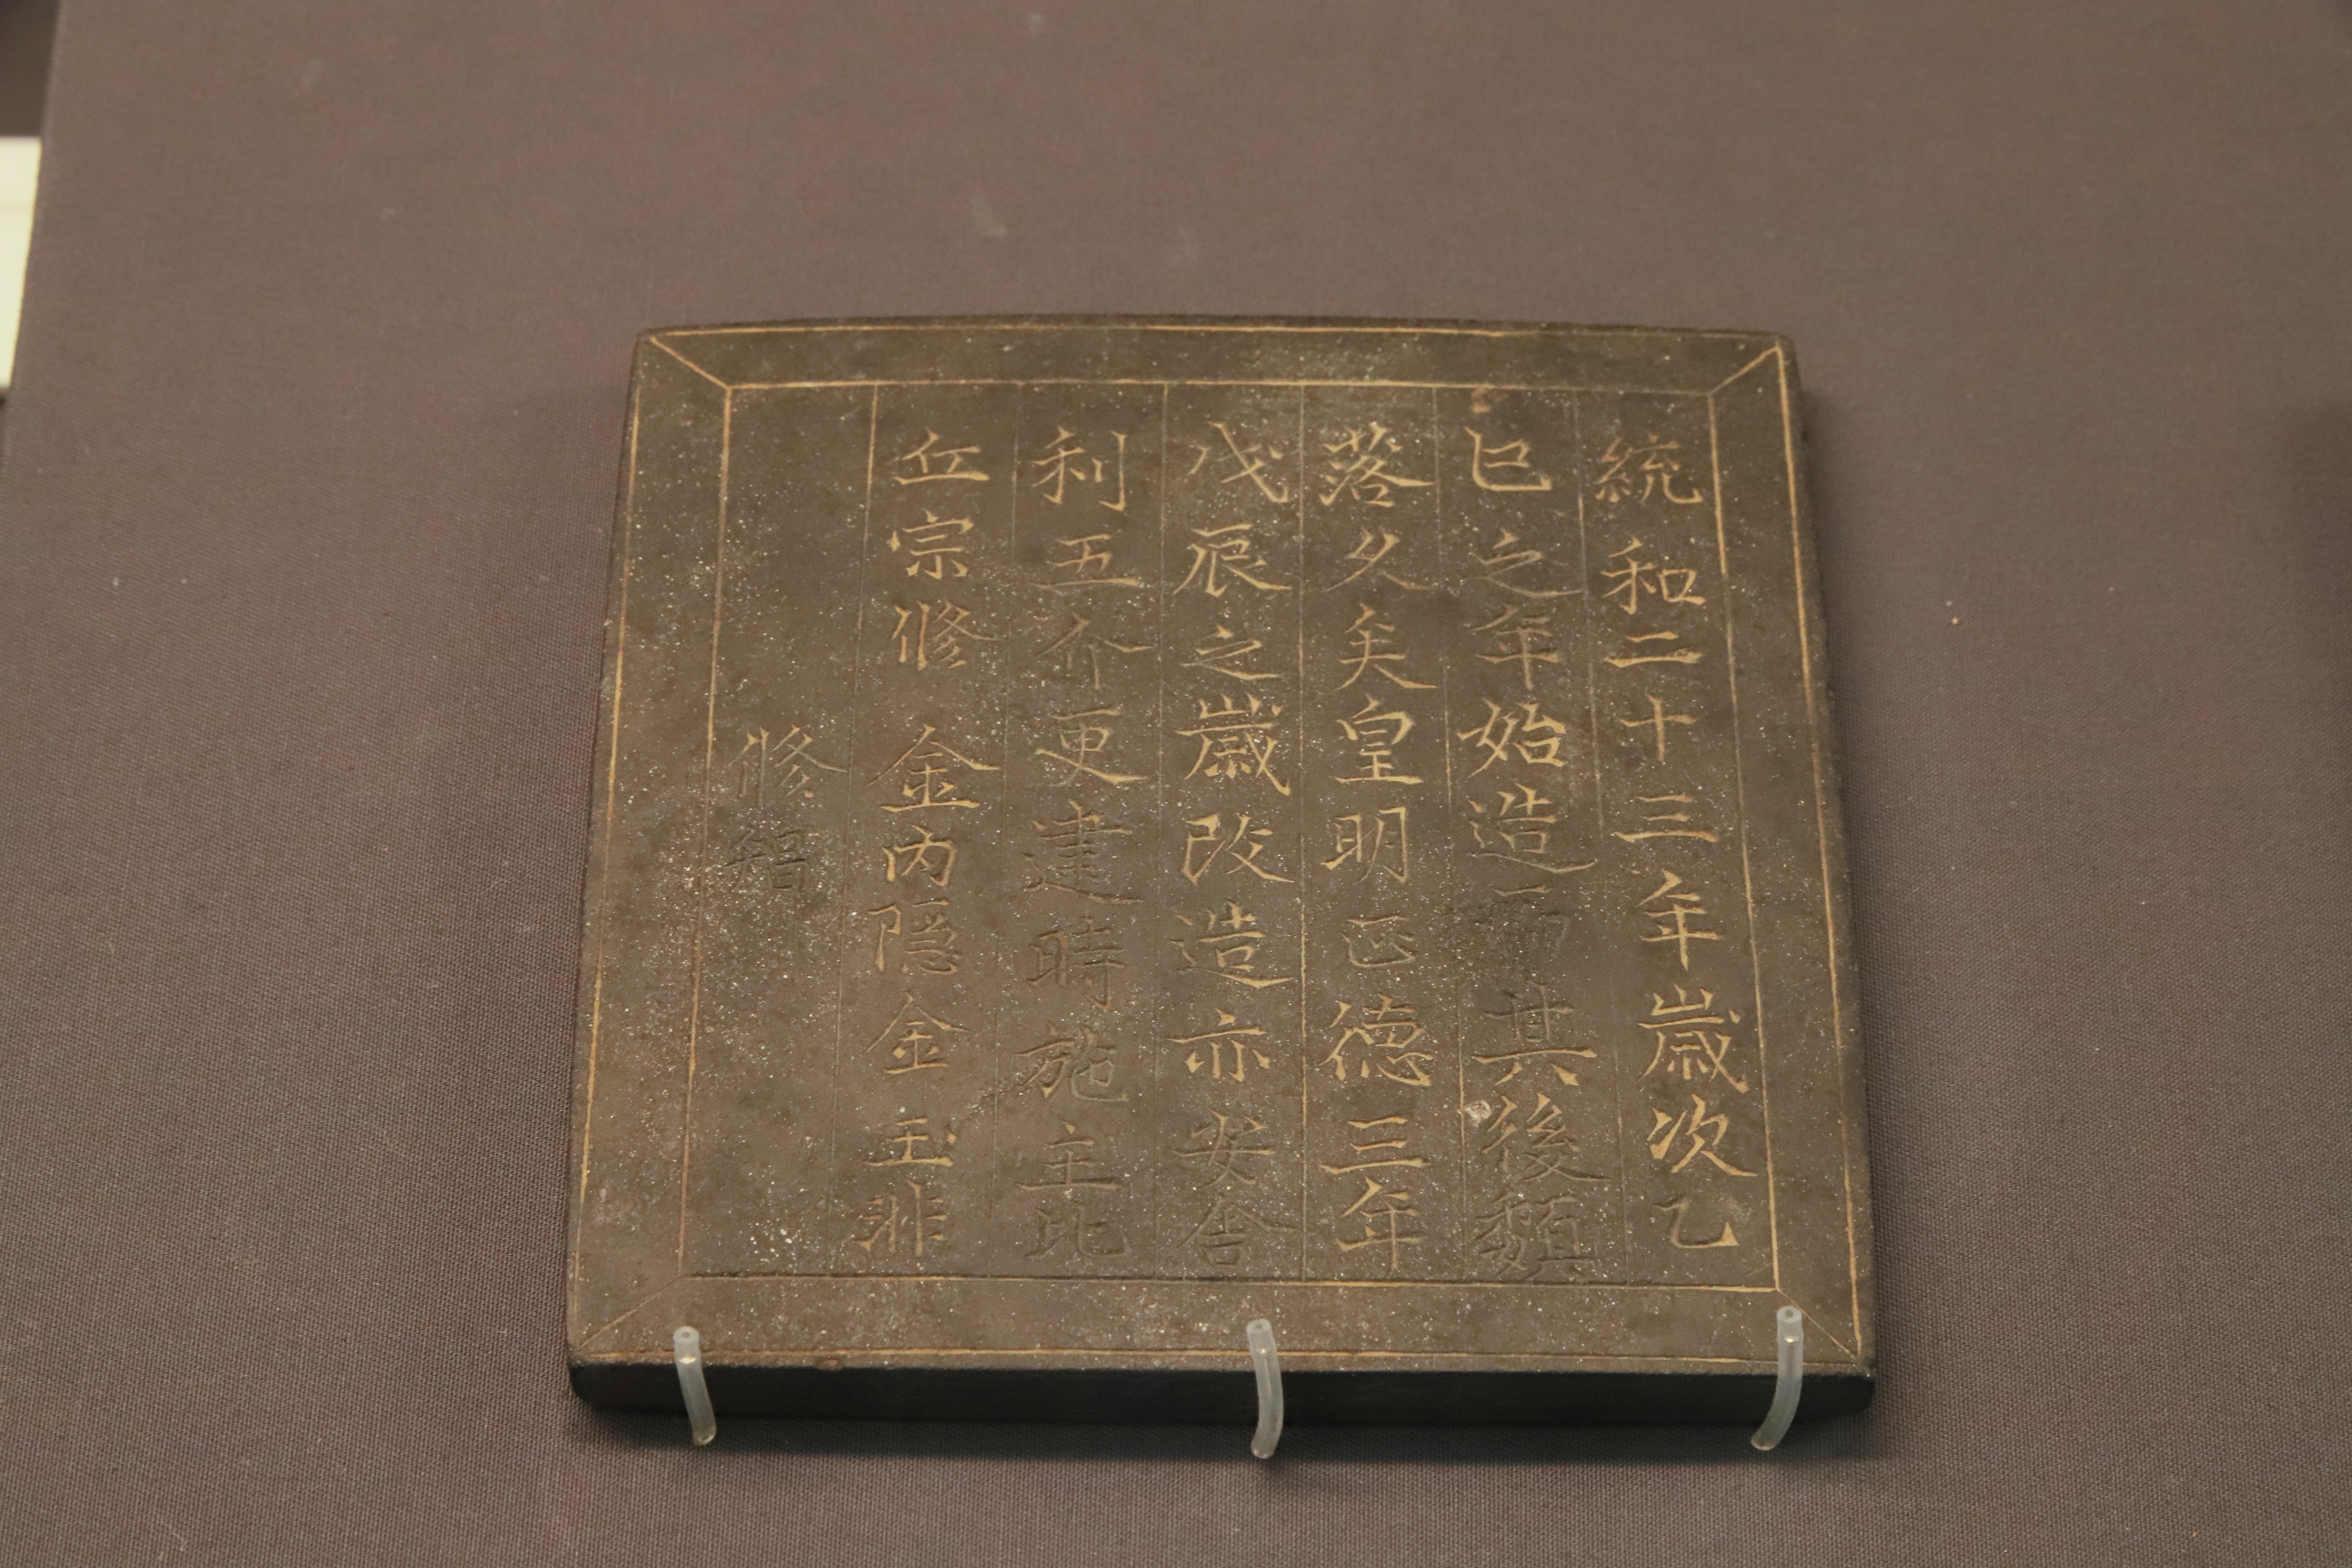 統和二十三年歲次乙
巳之年始造而其後顛
落久矣皇明正德三年
戊辰之歲改造亦安舍
利五介更建時施主比
丘宗修 金內隱金 玉非
修智